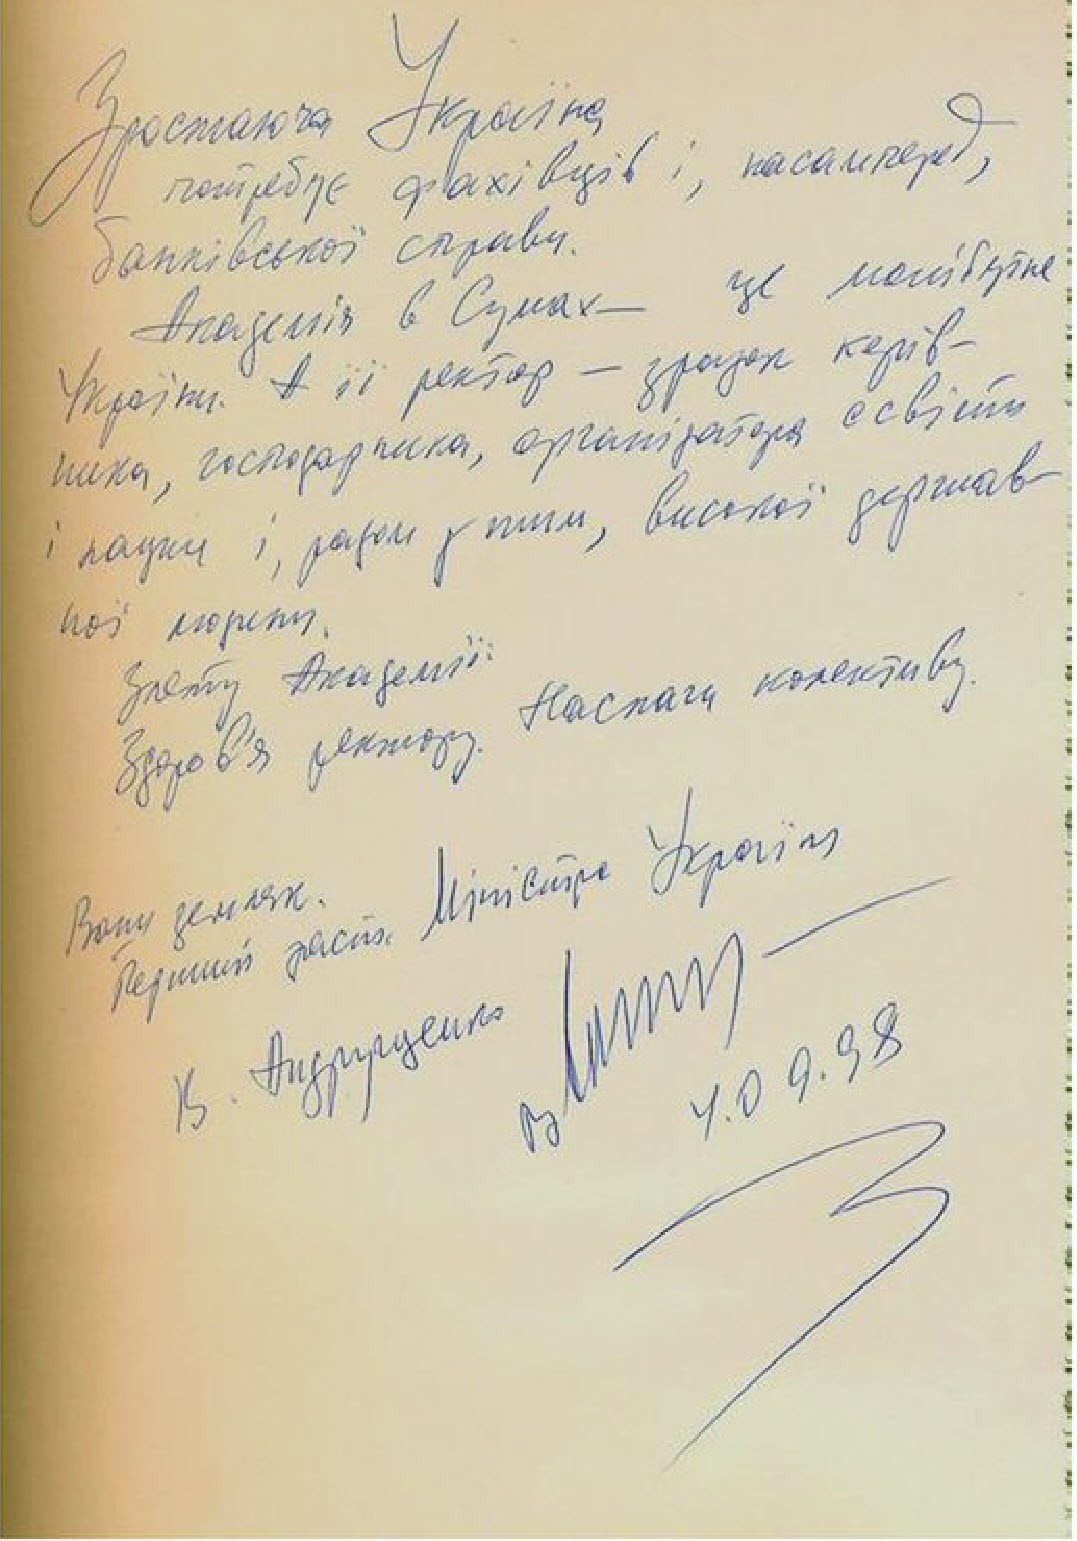 Зростаюча Україна
потребує фахівців і, насамперед,
банківської справи.
Академія в Сумах — це майбутнє
України. А її ректор — зразок керів-
ника, господарника, організатора освіти
і науки і, разом з тим, високої держав-
ної людини.
Злету Академії!
Здоров'я ректору. Наснаги колективу.
Ваш земляк.
Перший заст. Міністра України
В. Андрущенко
4.09.98